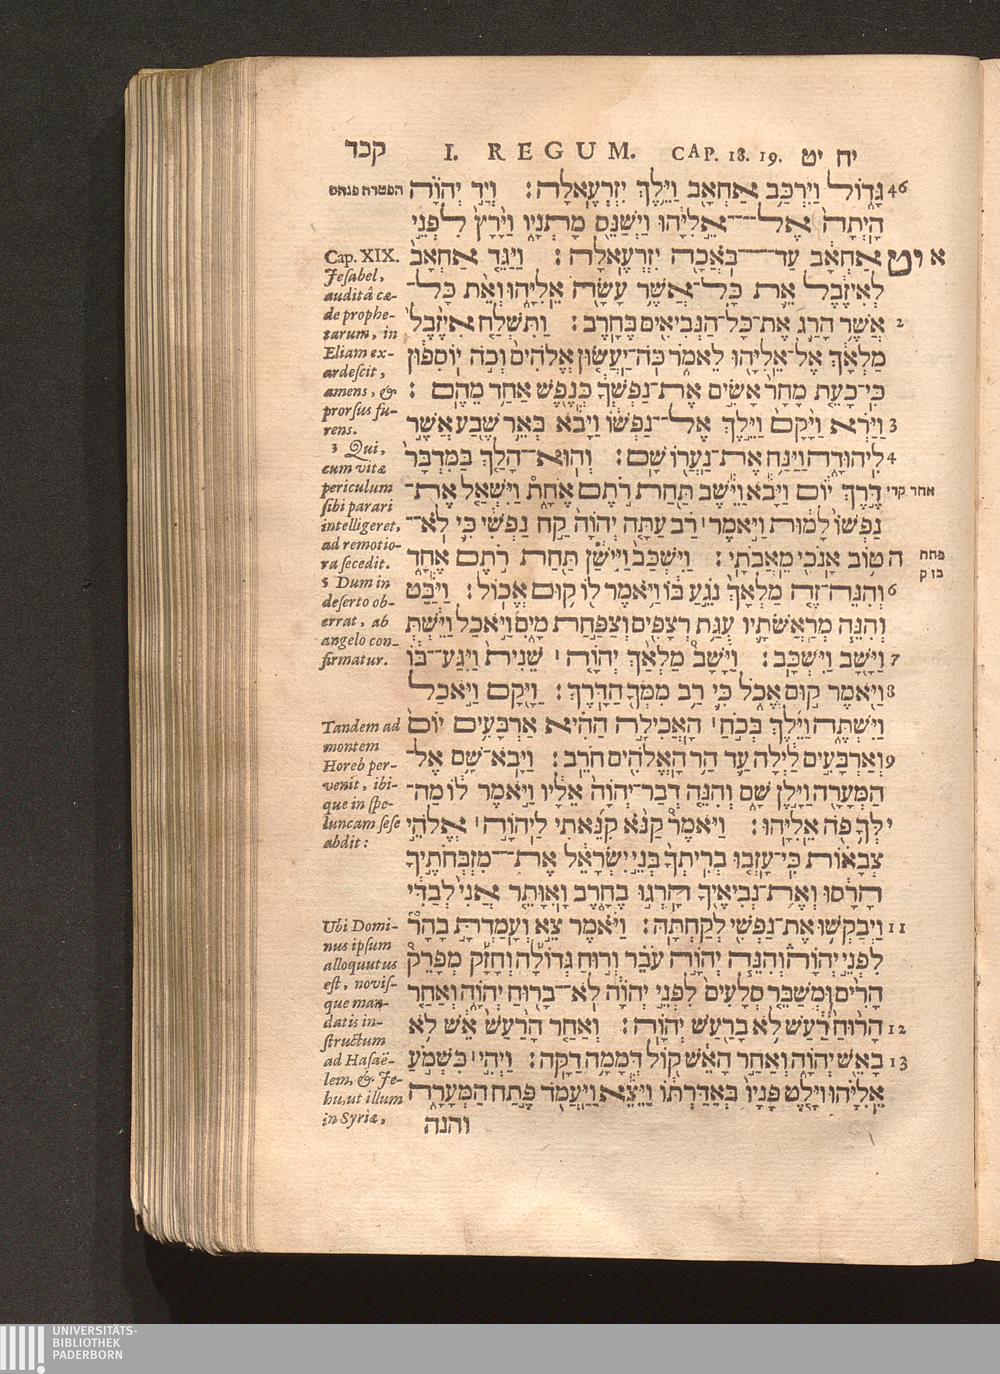 קכד I. REGUM. CAP. 18. 19. יח יט
הפטרה פנחס
46 גָּדוֹל וַיִּרְכַּב אַחְאָב וַיֵּלֶךְ יִזְרְעֶאלָה׃ וְיַד יְהוָֹה
הָיְתָה אֶל־אֵלִיָּהוּ וַיְשַׁנֵּס מָתְנָיו וַיָּרָץ לִפְנֵי
א יט אַחְאָב עַד־בֹּאֲכָה יִזְרְעֶאלָה׃ וַיַּגֵּד אַחְאָב
לְאִיזֶבֶל אֵת כָּל־אֲשֶׁר עָשָׂה אֵלִיָּהוּ וְאֵת כָּל־
2 אֲשֶׁר הָרַג אֶת־כָּל־הַנְּבִיאִים בֶּחָרֶב׃ וַתִּשְׁלַח אִיזֶבֶל
מַלְאָךְ אֶל־אֵלִיָּהוּ לֵאמֹר כֹּה־יַעֲשׂוּן אֱלֹהִים וְכֹה יוֹסִפוּן
כִּי־כָעֵת מָחָר אָשִׂים אֶת־נַפְשְׁךָ כְּנֶפֶשׁ אַחַד מֵהֶם׃
3 וַיַּרְא וַיָּקָם וַיֵּלֶךְ אֶל־נַפְשׁוֹ וַיָּבֹא בְּאֵר שֶׁבַע אֲשֶׁר
4 לִיהוּדָה וַיַּנַּח אֶת־נַעֲרוֹ שָׁם׃ וְהוּא־הָלַךְ בַּמִּדְבָּר
דֶּרֶךְ יוֹם וַיָּבֹא וַיֵּשֶׁב תַּחַת רֹתֶם אֶחָת וַיִּשְׁאַל אֶת־
אחד קרי
נַפְשׁוֹ לָמוּת וַיֹּאמֶר׀ רַב עַתָּה יְהוָֹה קַח נַפְשִׁי כִּי לֹא־
ה טוֹב אָנֹכִי מֵאֲבֹתָי׃ וַיִּשְׁכַּב וַיִּישַׁן תַּחַת רֹתֶם אֶחָד
פתח
בז ק
6 וְהִנֵּה־זֶה מַלְאָךְ נֹגֵעַ בּוֹ וַיֹּאמֶר לוֹ קוּם אֱכוֹל׃ וַיַּבֵּט
וְהִנֵּה מְרַאֲשֹׁתָיו עֻגַת רְצָפִים וְצַפַּחַת מָיִם וַיֹּאכַל וַיֵּשְׁתְּ
7 וַיָּשָׁב וַיִּשְׁכָּב׃ וַיָּשָׁב מַלְאַךְ יְהוָֹה׀ שֵׁנִית וַיִּגַּע־בּוֹ
8 וַיֹּאמֶר קוּם אֱכֹל כִּי רַב מִמְּךָ הַדָּרֶךְ׃ וַיָּקָם וַיֹּאכַל
וַיִּשְׁתֶּה וַיֵּלֶךְ בְּכֹחַ׀ הָאֲכִילָה הַהִיא אַרְבָּעִים יוֹם
9 וְאַרְבָּעִים לַיְלָה עַד הַר הָאֱלֹהִים חֹרֵב׃ וַיָּבֹא־שָׁם אֶל־
הַמְּעָרָה וַיָּלֶן שָׁם וְהִנֵּה דְבַר־יְהוָֹה אֵלָיו וַיֹּאמֶר לוֹ מַה־
י לְּךָ פֹה אֵלִיָּהוּ׃ וַיֹּאמֶר קַנֹּא קִנֵּאתִי לַיהוָֹה׀ אֱלֹהֵי
צְבָאוֹת כִּי־עָזְבוּ בְרִיתְךָ בְּנֵי יִשְׂרָאֵל אֶת־מִזְבְּחֹתֶיךָ
הָרָסוּ וְאֶת־נְבִיאֶיךָ הָרְגוּ בֶחָרֶב וָאִוָּתֵר אֲנִי לְבַדִּי
11 וַיְבַקְשׁוּ אֶת־נַפְשִׁי לְקַחְתָּהּ׃ וַיֹּאמֶר צֵא וְעָמַדְתָּ בָהָר
לִפְנֵי יְהוָֹה וְהִנֵּה יְהוָֹה עֹבֵר וְרוּחַ גְּדוֹלָה וְחָזָק מְפָרֵק
הָרִים וּמְשַׁבֵּר סְלָעִים לִפְנֵי יְהוָֹה לֹא־בָרוּחַ יְהוָֹה וְאַחַר
12 הָרוּחַ רַעַשׁ לֹא בָרַעַשׁ יְהוָֹה׃ וְאַחַר הָרַעַשׁ אֵשׁ לֹא
13 בָאֵשׁ יְהוָֹה וְאַחַר הָאֵשׁ קוֹל דְּמָמָה דַקָּה׃ וַיְהִי׀ כִּשְׁמֹעַ
אֵלִיָּהוּ וַיָּלֶט פָּנָיו בְּאַדַּרְתּוֹ וַיֵּצֵא וַיַּעֲמֹד פֶּתַח הַמְּעָרָה
והנה
Cap. XIX.
Jesabel,
auditâ cæ-
de prophe-
tarum, in
Eliam ex-
ardescit,
amens, &
prorsus fu-
rens.
3 Qui,
cum vitæ
periculum
sibi parari
intelligeret,
ad remotio-
ra secedit.
5 Dum in
deserto ob-
errat, ab
angelo con-
firmatur.
Tandem ad
montem
Horeb per-
venit, ibi-
que in spe-
luncam sese
abdit:
Ubi Domi-
nus ipsum
alloquutus
est, novis-
que man-
datis in-
structum
ad Hasaë-
lem, & Je-
hu, ut illum
in Syriæ,
UNIVERSITÄTS-
BIBLIOTHEK
PADERBORN